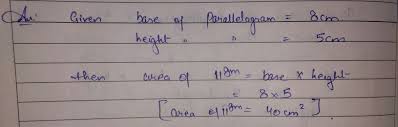 Ans: Given base of Parallelogram = 8cm
height " " = 5cm
then area of ||gm = base x height
= 8 x 5
[area of ||gm = 40cm²]